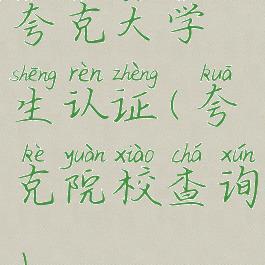 夸克大学
shēng rèn zhèng kuā
生认证(夸
kè yuàn xiào chá xún
克院校查询
)